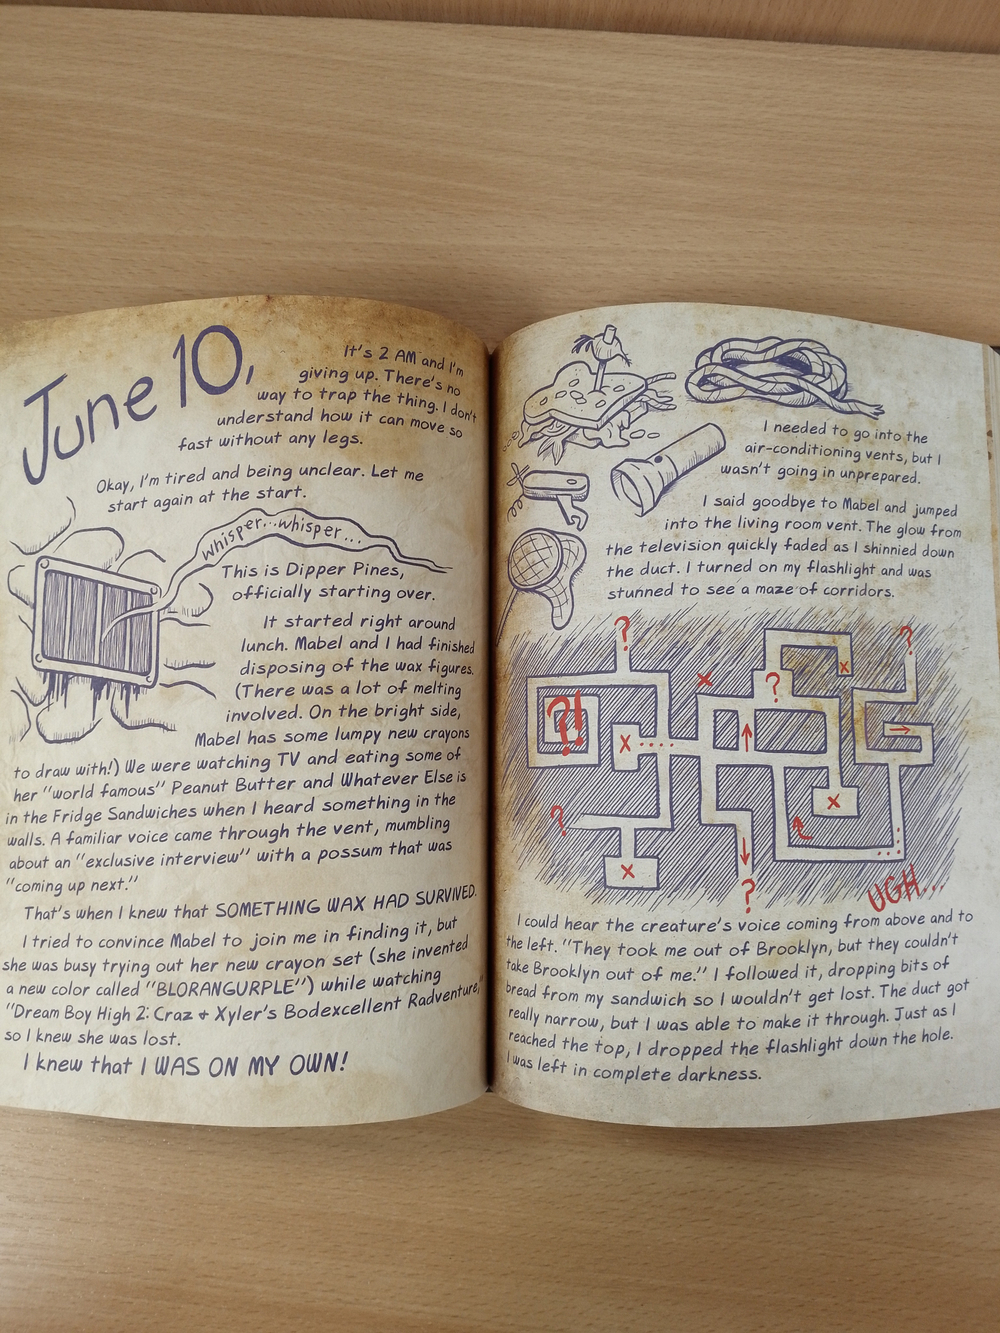 June 10,
It's 2 AM and I'm
giving up. There's no
way to trap the thing. I don't
understand how it can move so
fast without any legs.
Okay, I'm tired and being unclear. Let me
start again at the start.
whisper...whisper...
This is Dipper Pines,
officially starting over.
It started right around
lunch. Mabel and I had finished
disposing of the wax figures.
(There was a lot of melting
involved. On the bright side,
Mabel has some lumpy new crayons
to draw with!) We were watching TV and eating some of
her "world famous" Peanut Butter and Whatever Else is
in the Fridge Sandwiches when I heard something in the
walls. A familiar voice came through the vent, mumbling
about an "exclusive interview" with a possum that was
"coming up next."
That's when I knew that SOMETHING WAX HAD SURVIVED.
I tried to convince Mabel to join me in finding it, but
she was busy trying out her new crayon set (she invented
a new color called "BLORANGURPLE") while watching
"Dream Boy High 2: Craz + Xyler's Bodexcellent Radventure,"
so I knew she was lost.
I knew that I WAS ON MY OWN!
I needed to go into the
air-conditioning vents, but I
wasn't going in unprepared.
I said goodbye to Mabel and jumped
into the living room vent. The glow from
the television quickly faded as I shinnied down
the duct. I turned on my flashlight and was
stunned to see a maze of corridors.
?
?
X
X
?
?!
X
X
?
X
?
UGH...
I could hear the creature's voice coming from above and to
the left. "They took me out of Brooklyn, but they couldn't
take Brooklyn out of me." I followed it, dropping bits of
bread from my sandwich so I wouldn't get lost. The duct got
really narrow, but I was able to make it through. Just as I
reached the top, I dropped the flashlight down the hole.
I was left in complete darkness.